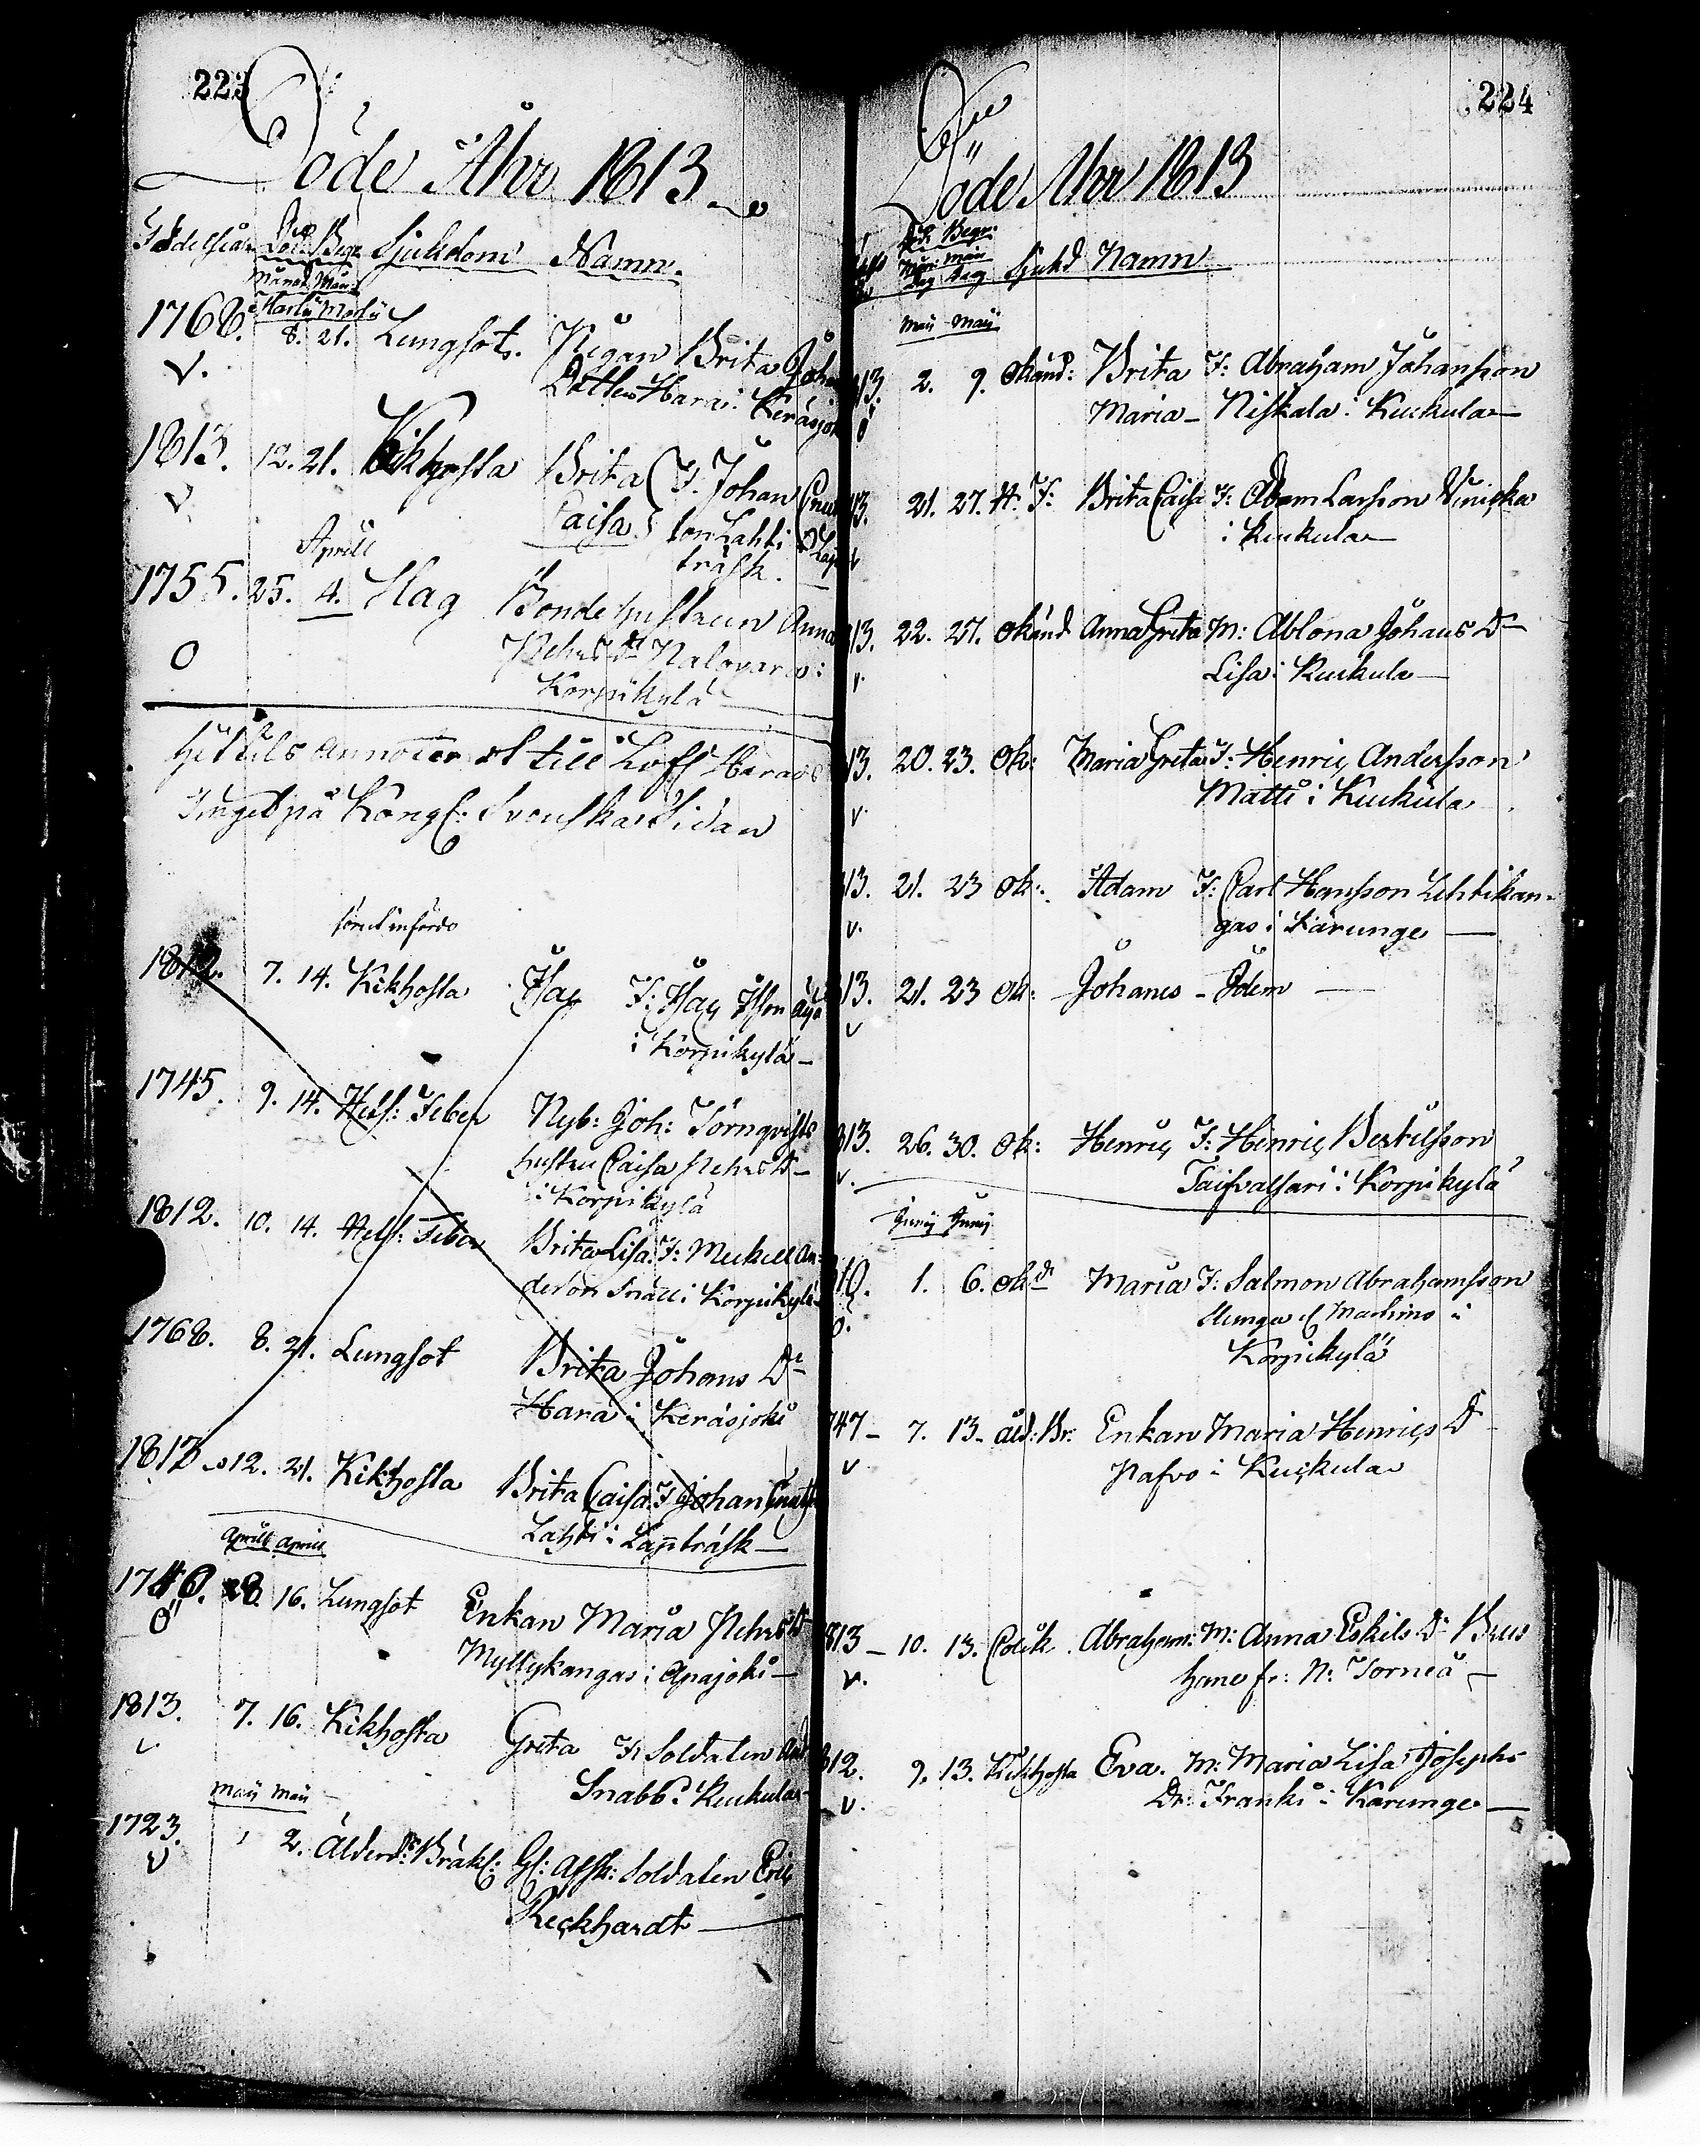 223
Döde Åhr 1813
Födelseår Död Begr Sjukdom Namn.
Månad Mån:
Martii Martii
1768. 8. 21. Lungsot. Pigan Brita Joh
v. Dotter Hara i Keräsjok
1813. 12. 21. Kikhosta Brita F. Johan
v Caisa son Lahti
träsk.
Aprill
1755. 25. 4. Slag Bondehustrun Anna
O Pehrs Dr Nalovara i
Korpikylä
hitils annoterat till Höff Härads
Tinget på Kongl: Svenska Sidan
förut införde
1812. 7. 14. Kikhosta Isac F: Isac
i Korpikylä
1745. 9. 14. Hetsf: Feber Nyb: Joh: Törnqvists
hustru Caisa Pehrs D
i Korpikylä
1812. 10. 14. Hetsf: Feber Brita Lisa. F: Meckell An
derson Snäll i Korpikylä
1768. 8. 21. Lungsot Brita Johans Dr
Hara i Keräsjoki
1813 12. 21. Kikhosta Brita Caisa. F Johan
Lahti i Lapträsk
Aprill April
1746. 28. 16. Lungsot Enkan Maria Pehrs D
Ö Myllykangas i Apajoki
1813. 7. 16. Kikhosta Greta F: Soldaten And
v Snabb i Kuckula
Maii Maii
1723. 2. Ålderd: Bräkl: Gl: Afsk: Soldaten Eric
v Reckhardt
224
Döde Åhr 1813
Död: Begr:
Mån: Mån
Dag Dag Sjukd Namn
Maii Maii
13. 2. 9. Okänd: Brita F: Abraham Johansson
ö Maria Niskala i Kuckula
13. 21. 27. H. F: Brita Caisa F: Adam Larsson Vinicka
v i Kuckula
13. 22. 27. Okänd Anna Greta M: Ablona Johans Dr
v. Lisa i Kuckula
13. 20. 23. Ok: Maria Greta F: Henric Andersson
v. Matti i Kuckula
13. 21. 23 Ok: Adam F: Carl Hansson Lehtikan-
v. gas i Karunge
813. 21. 23 Ok: Johanes Idem
v
813. 26. 30. Ok: Henric F: Henric Bertilsson
v. Taifvalsari i Korpikylä
Junii Junii
810. 1. 6. Ok Maria F: Salmon Abrahamsson
ö. Munga el Machino i
Korpikylä
747 7. 13. åld: Br: Enkan Maria Henrics D
v Pafvo i Kuckula
813 10. 13. Colik. Abraham: M: Anna Eskils Dr Brus
v. hane fr: N: Torneå
812. 9. 13. Kikhosta Eva. M: Maria Lisa Josephs
v. Dr: Franki i Karunge